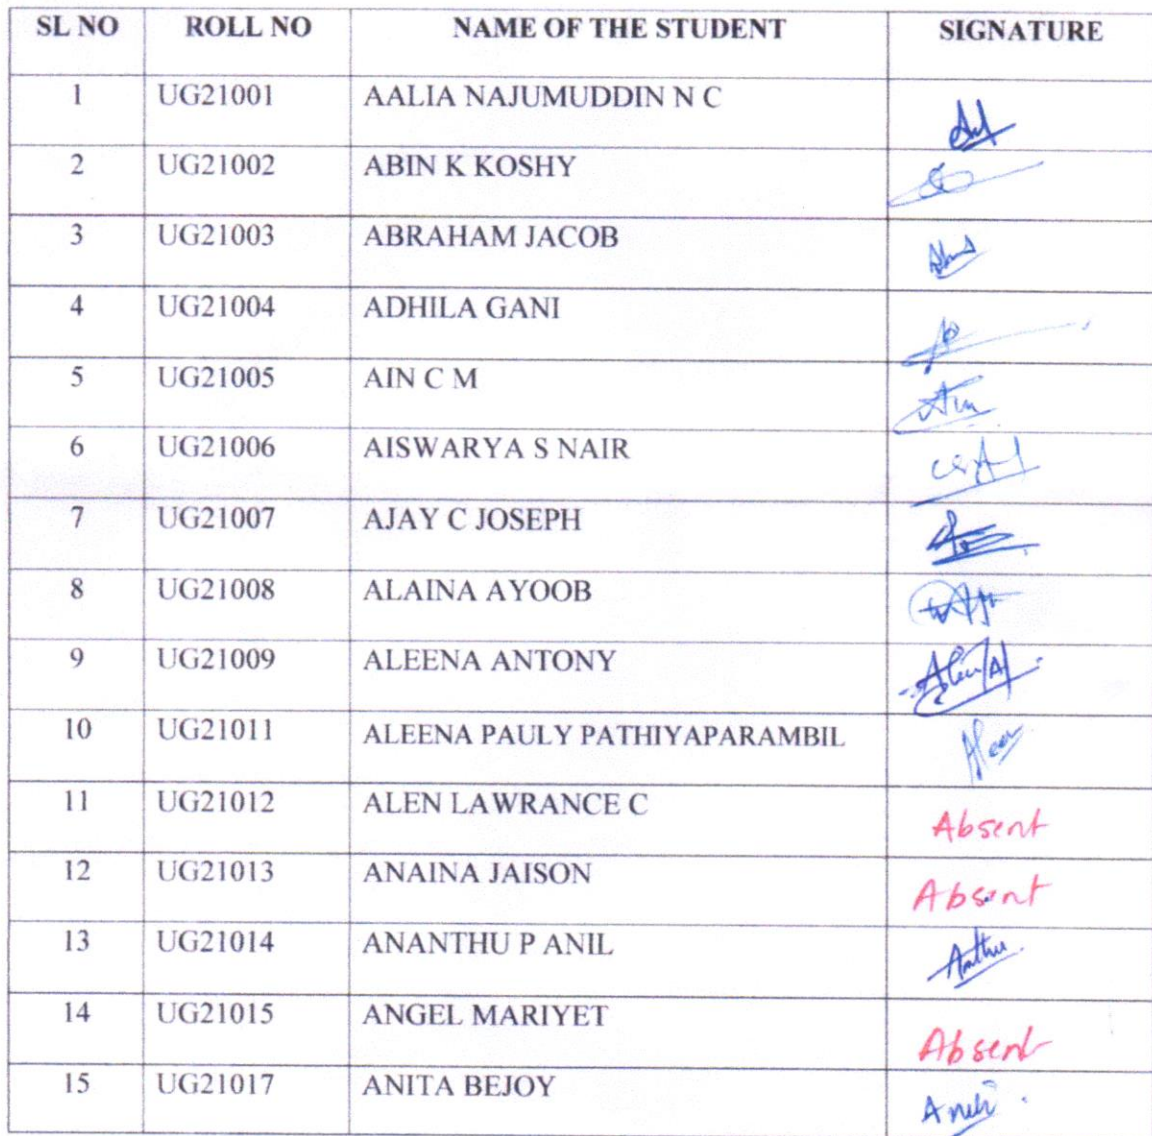 SL NO ROLL NO NAME OF THE STUDENT SIGNATURE
1 UG21001 AALIA NAJUMUDDIN N C
2 UG21002 ABIN K KOSHY
3 UG21003 ABRAHAM JACOB
4 UG21004 ADHILA GANI
5 UG21005 AIN C M
6 UG21006 AISWARYA S NAIR
7 UG21007 AJAY C JOSEPH
8 UG21008 ALAINA AYOOB
9 UG21009 ALEENA ANTONY
10 UG21011 ALEENA PAULY PATHIYAPARAMBIL
11 UG21012 ALEN LAWRANCE C Absent
12 UG21013 ANAINA JAISON Absent
13 UG21014 ANANTHU P ANIL
14 UG21015 ANGEL MARIYET Absent
15 UG21017 ANITA BEJOY